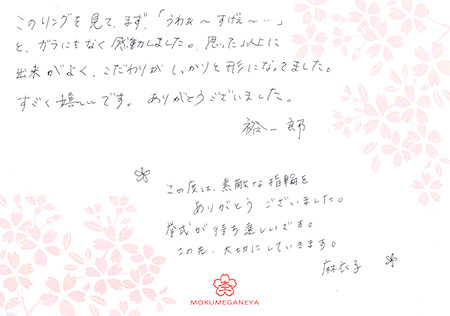 このリングを見て、まず、「うわぁ〜すげぇ〜…」
と、ガラにもなく感動しました。思った以上に
出来がよく、こだわりがしっかりと形になってました。
すごく嬉しいです。ありがとうございました。
裕一郎
この度は、素敵な指輪を
ありがとうございました。
挙式が待ち遠しいです。
この先、大切にしていきます。
麻衣子
MOKUMEGANEYA